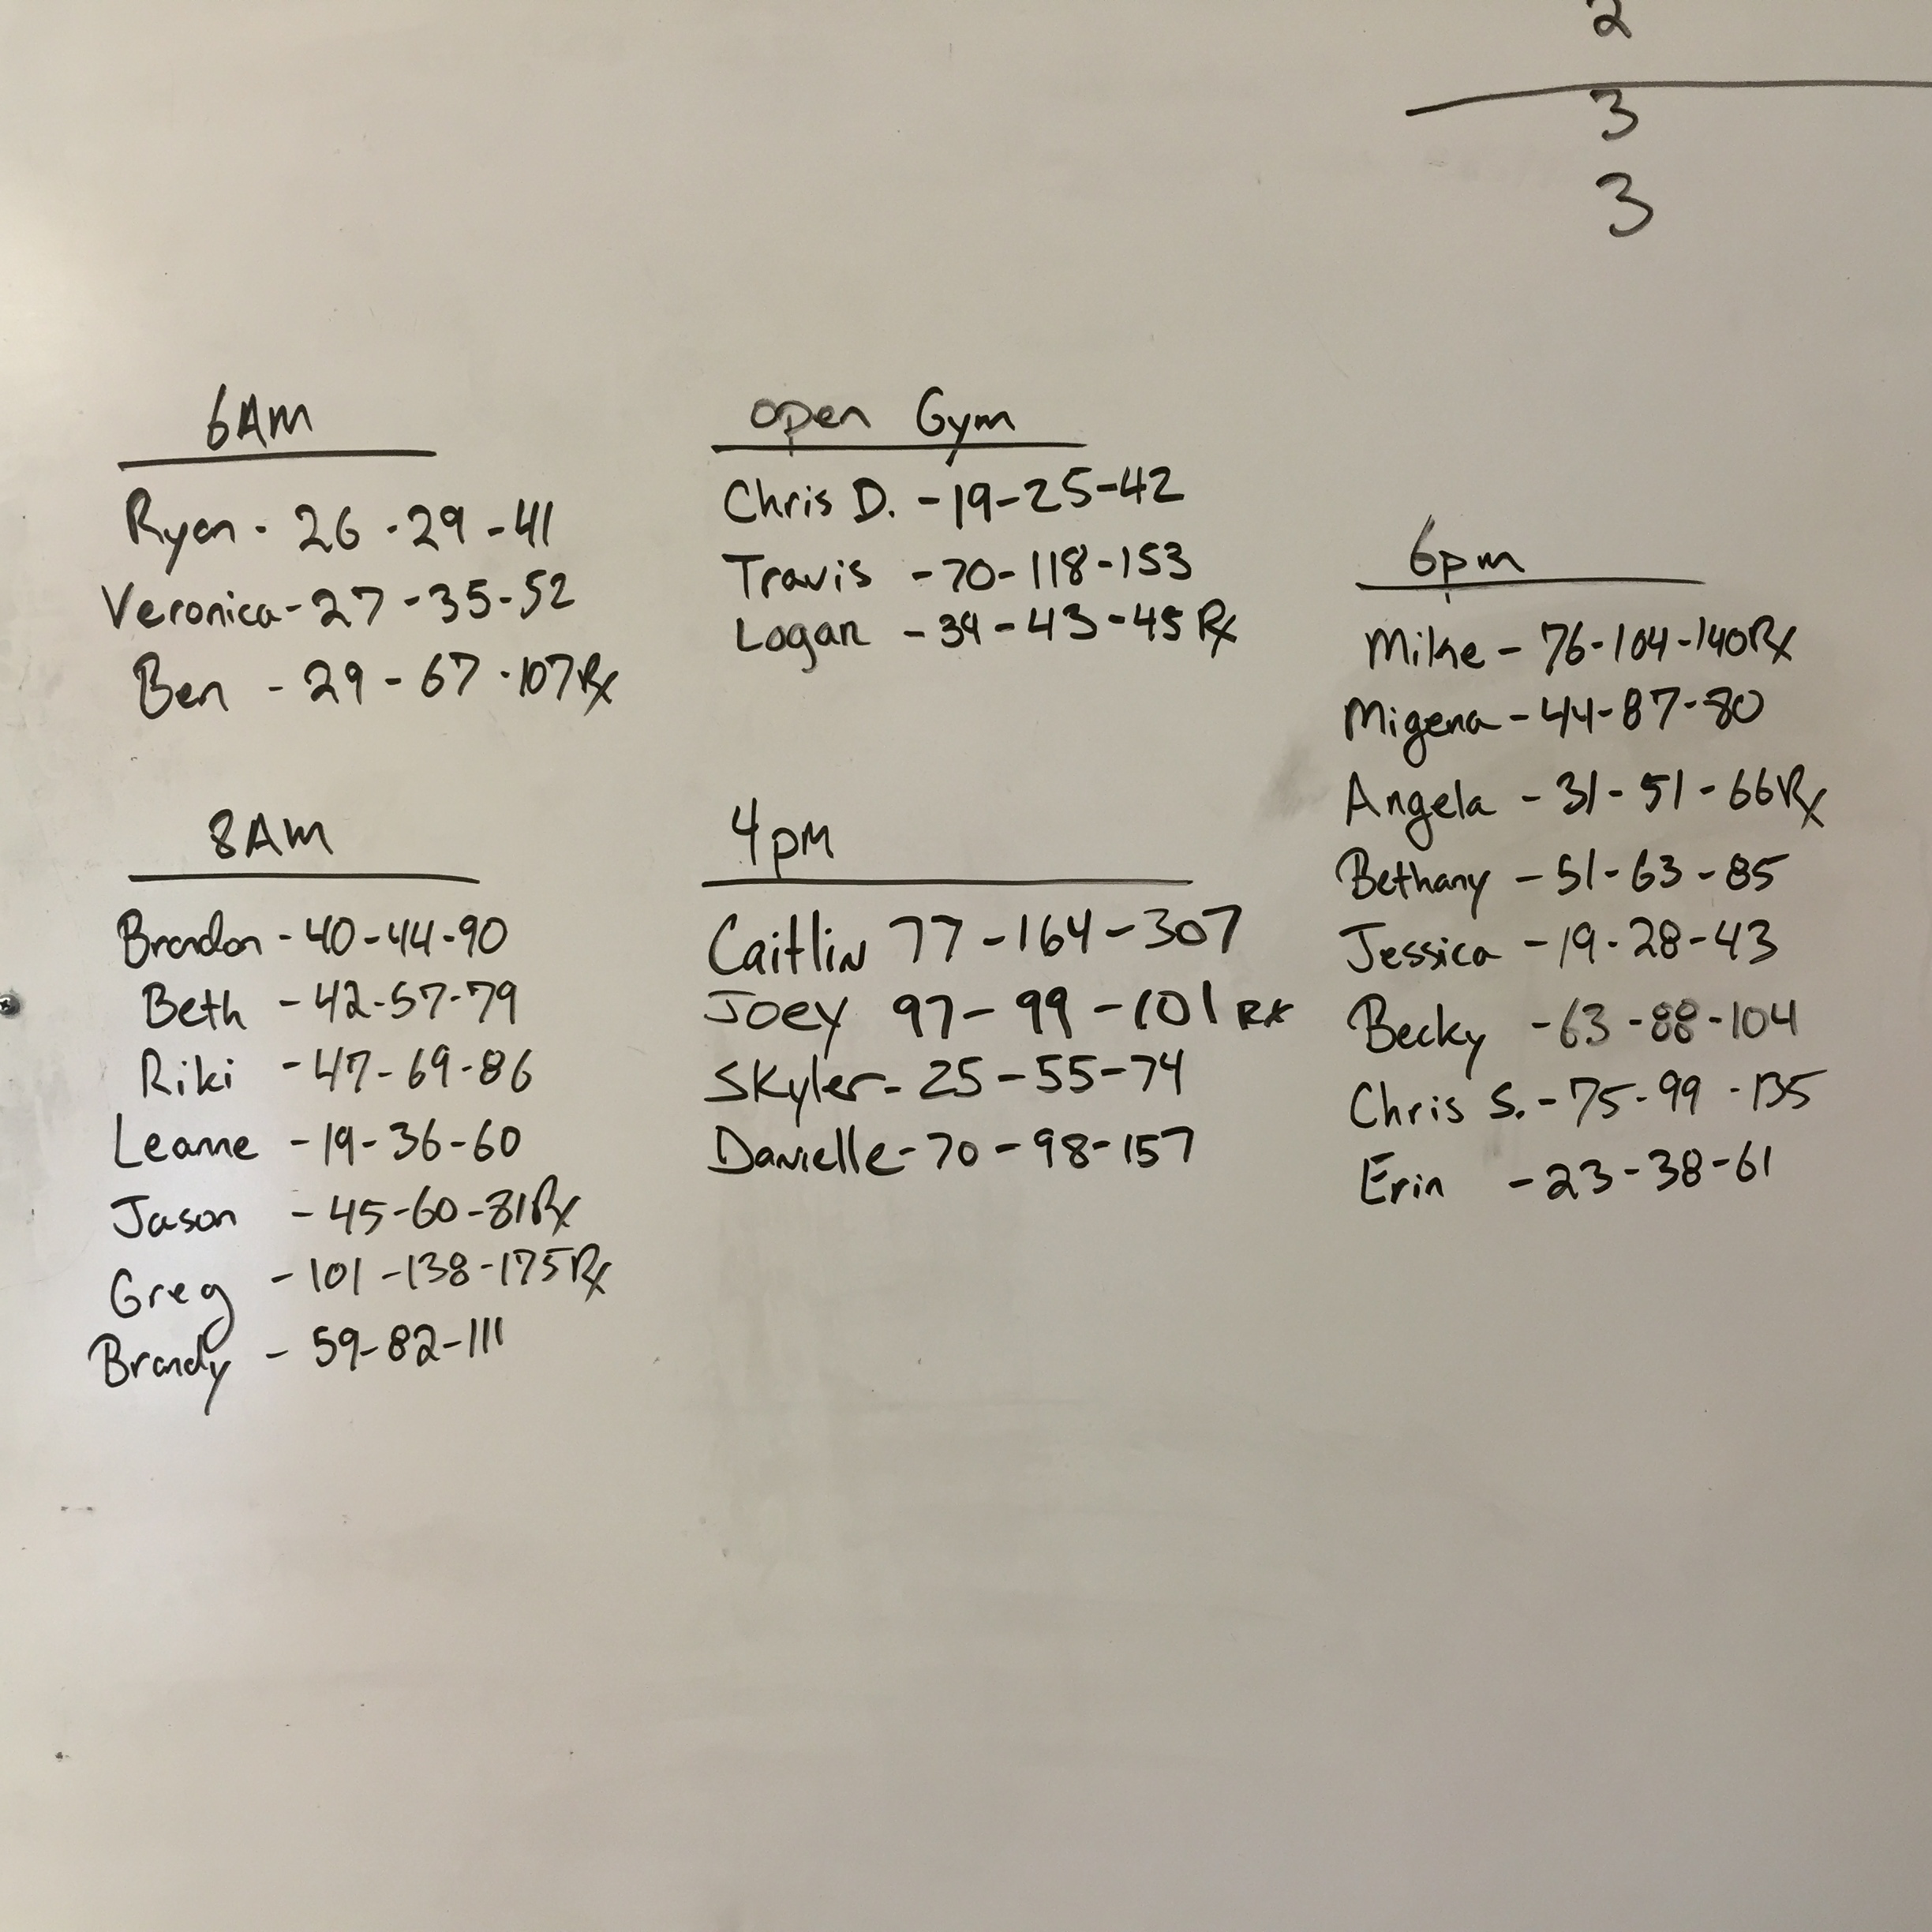 2
3
3
6AM
Ryan - 26 - 29 - 41
Veronica - 27 - 35 - 52
Ben - 29 - 67 - 107 Rx
8AM
Brandon - 40 - 44 - 90
Beth - 42 - 57 - 79
Riki - 47 - 69 - 86
Leanne - 19 - 36 - 60
Jason - 45 - 60 - 81 Rx
Greg - 101 - 138 - 175 Rx
Brandy - 59 - 82 - 111
open Gym
Chris D. - 19 - 25 - 42
Travis - 70 - 118 - 153
Logan - 34 - 43 - 45 Rx
4pm
Caitlin 77 - 164 - 307
Joey 97 - 99 - 101 RX
Skyler - 25 - 55 - 74
Danielle - 70 - 98 - 157
6pm
Mike - 76 - 104 - 140 Rx
Migena - 44 - 87 - 80
Angela - 31 - 51 - 66 Rx
Bethany - 51 - 63 - 85
Jessica - 19 - 28 - 43
Becky - 63 - 88 - 104
Chris S. - 75 - 99 - 135
Erin - 23 - 38 - 61